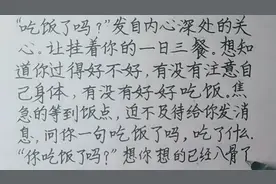 “吃饭了吗？”发自内心深处的关
心。让挂着你的一日三餐。想知
道你过得好不好，有没有注意自
己身体，有没有好好吃饭。焦
急的等到饭点，迫不及待给你发消
息，问你一句吃饭了吗，吃了什么.
“你吃饭了吗？”想你想的已经八骨了